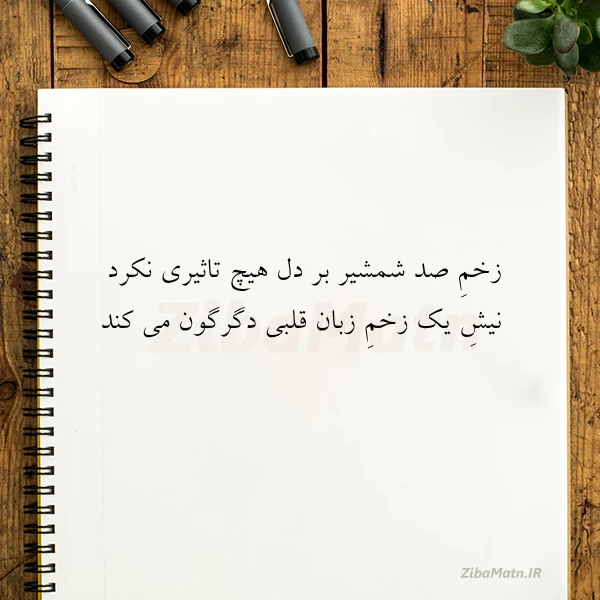 زخمِ صد شمشیر بر دل هیچ تاثیری نکرد
نیشِ یک زخمِ زبان قلبی دگرگون می کند
ZibaMatn.IR
ZibaMatn.IR